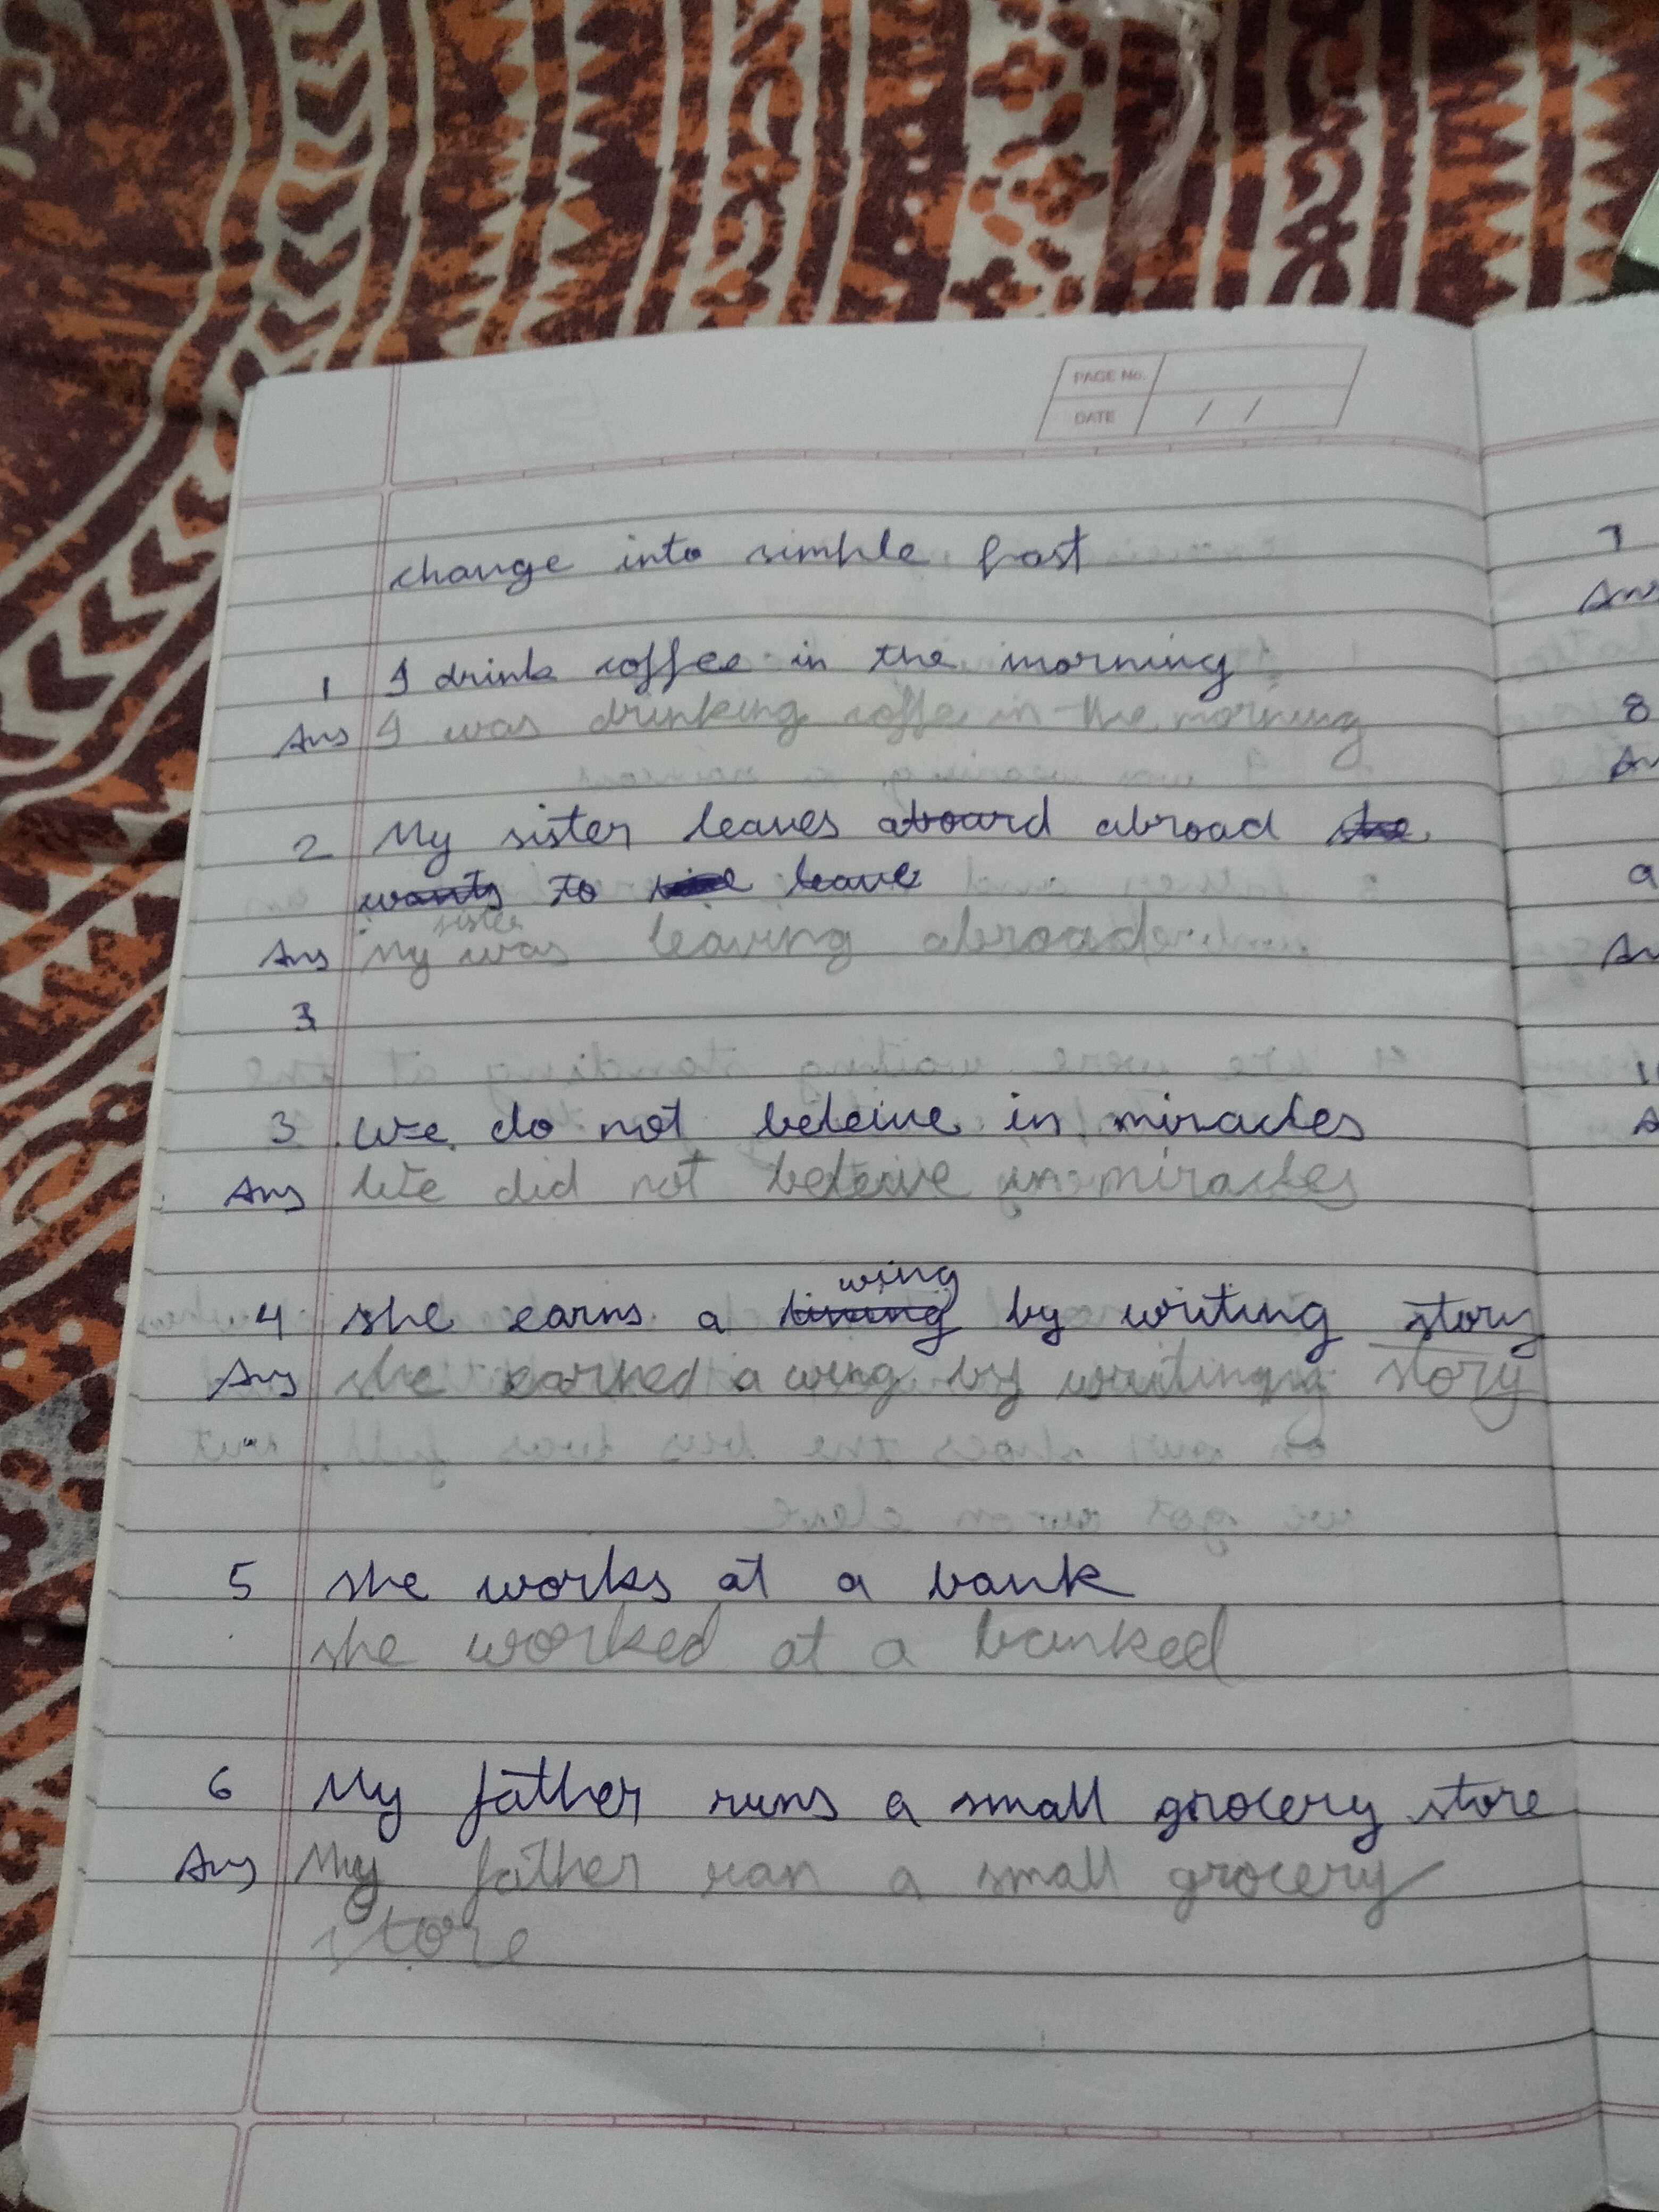 PAGE No.
DATE / /
change into simple past
1 I drink coffee in the morning
Ans I was drinking coffe in the morning
2 My sister leaves aboard abroad she
wants to leave
sister
Ans My was leaving abroad
3
3 We do not beleive in miracles
Ans We did not beleive in miracles
wing
4 she earns a by writing story
Ans she earned a wing by writing story
5 she works at a bank
she worked at a banked
6 My father runs a small grocery store
Ans My father ran a small grocery
store
7
Ans
8
An
9
An